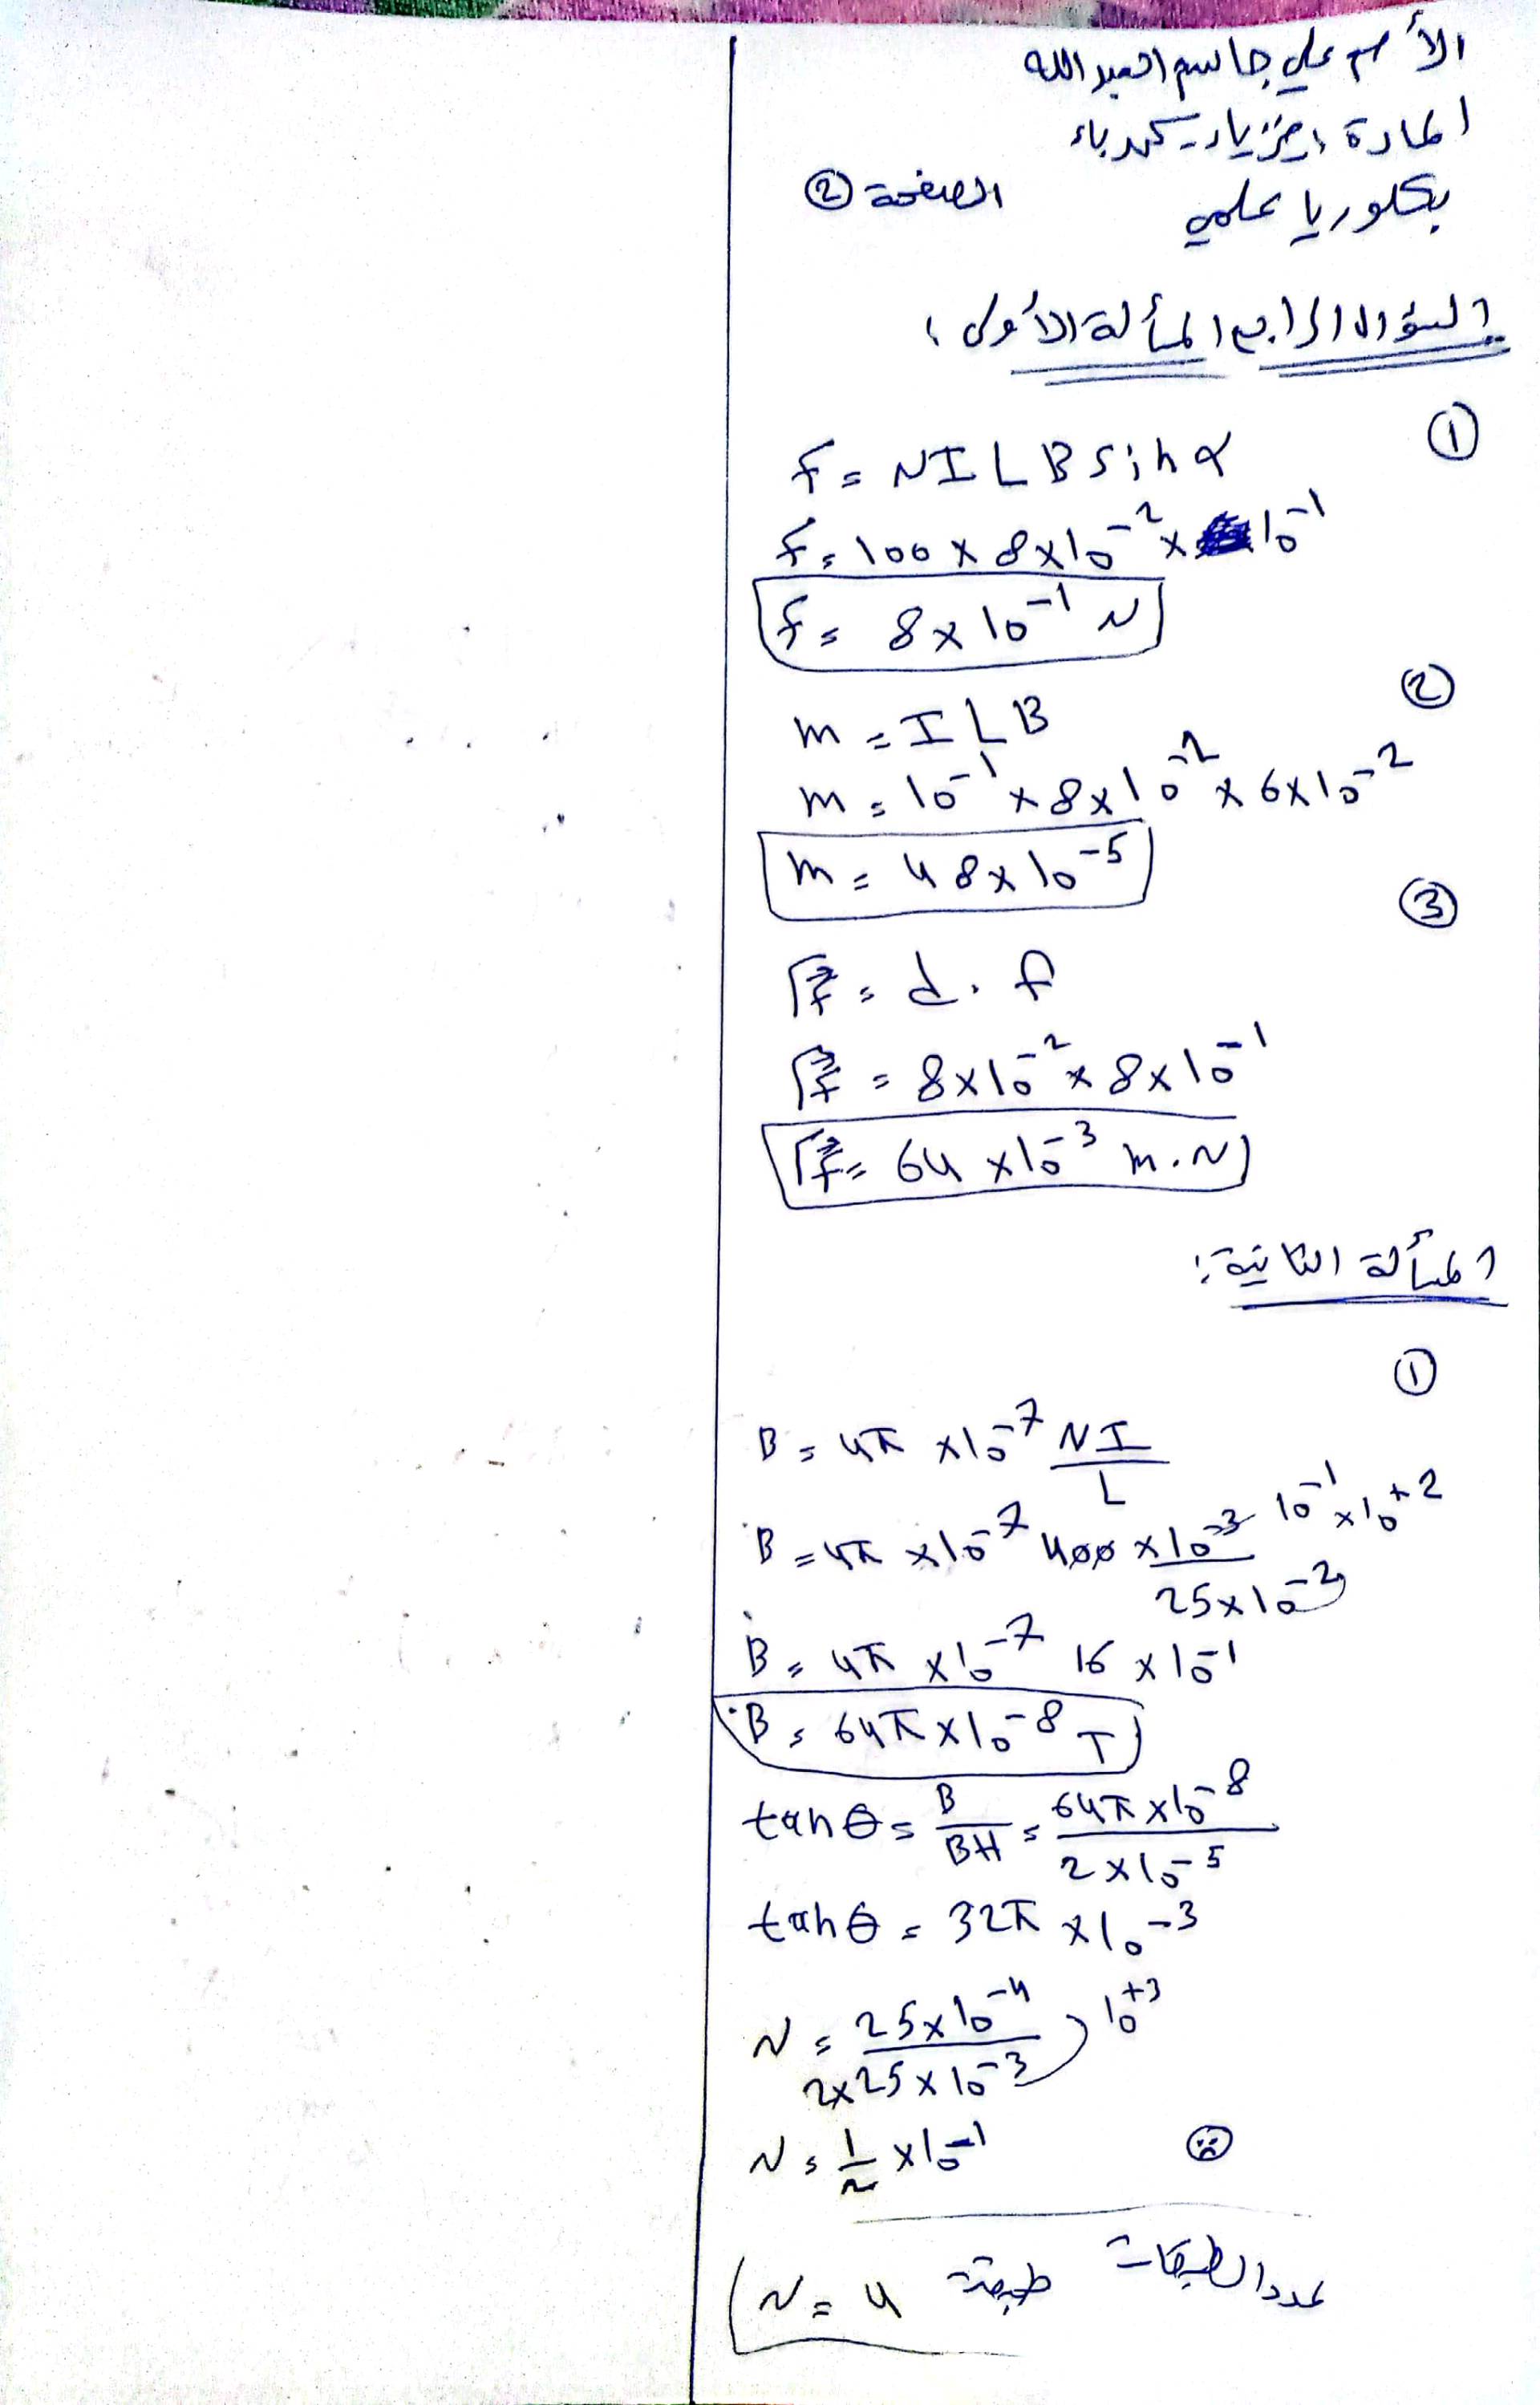 الأسم علي جاسم العبد الله
المادة: فيزياء - كهرباء
بكلوريا علمي الصفحة ②
السؤال الرابع المسألة الأولى:
①
F = N I L B sin α
F = 100 × 8×10⁻² × 10⁻¹
F = 8×10⁻¹ N
②
m = I L B
m = 10⁻¹ × 8×10⁻² × 6×10⁻²
m = 48×10⁻⁵
③
Γf⃗ = d . f
Γf⃗ = 8×10⁻² × 8×10⁻¹
Γf⃗ = 64×10⁻³ m.N
المسألة الثانية:
①
B = 4π ×10⁻⁷ NI / L
B = 4π ×10⁻⁷ 400 ×10⁻³ / 25×10⁻² 10⁻¹ ×10⁺²
B = 4π ×10⁻⁷ 16 ×10⁻¹
B = 64π×10⁻⁸ T
tan θ = B / BH = 64π ×10⁻⁸ / 2×10⁻⁵
tan θ = 32π ×10⁻³
N = 25×10⁻⁴ / 2×25×10⁻³ 10⁺³
N = 1/2 ×10⁻¹
عدد الطبقات طبقة N = 4